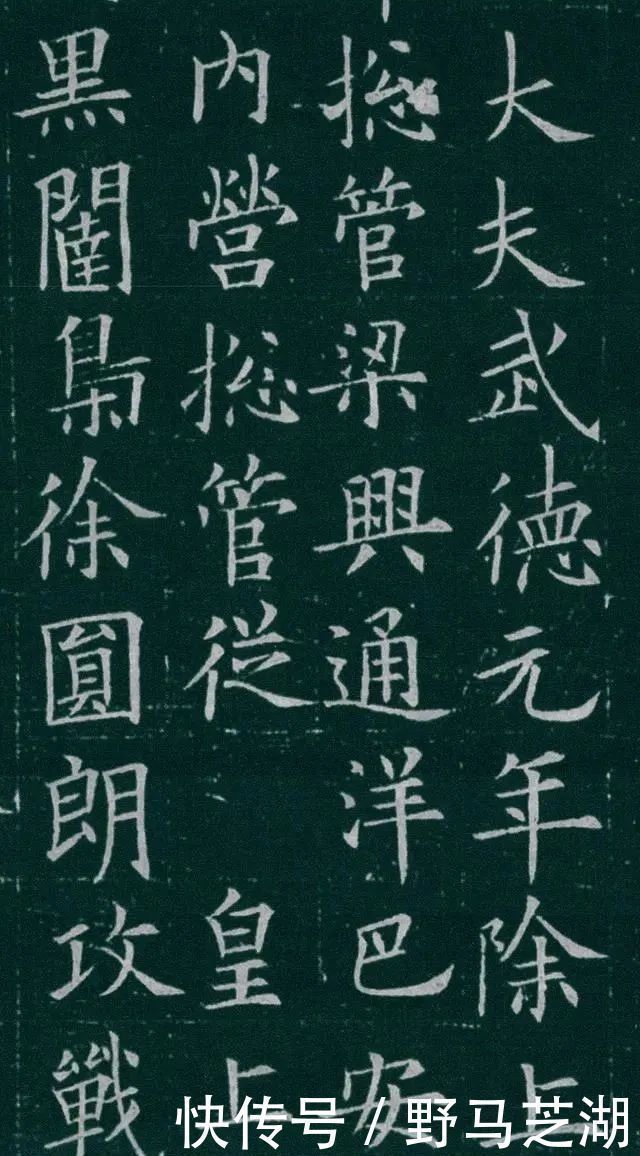 大夫武德元年除上
揔管梁興通洋巴安
內營揔管從 皇上
黑闥梟徐圓朗攻戰
快传号 / 野马芝湖